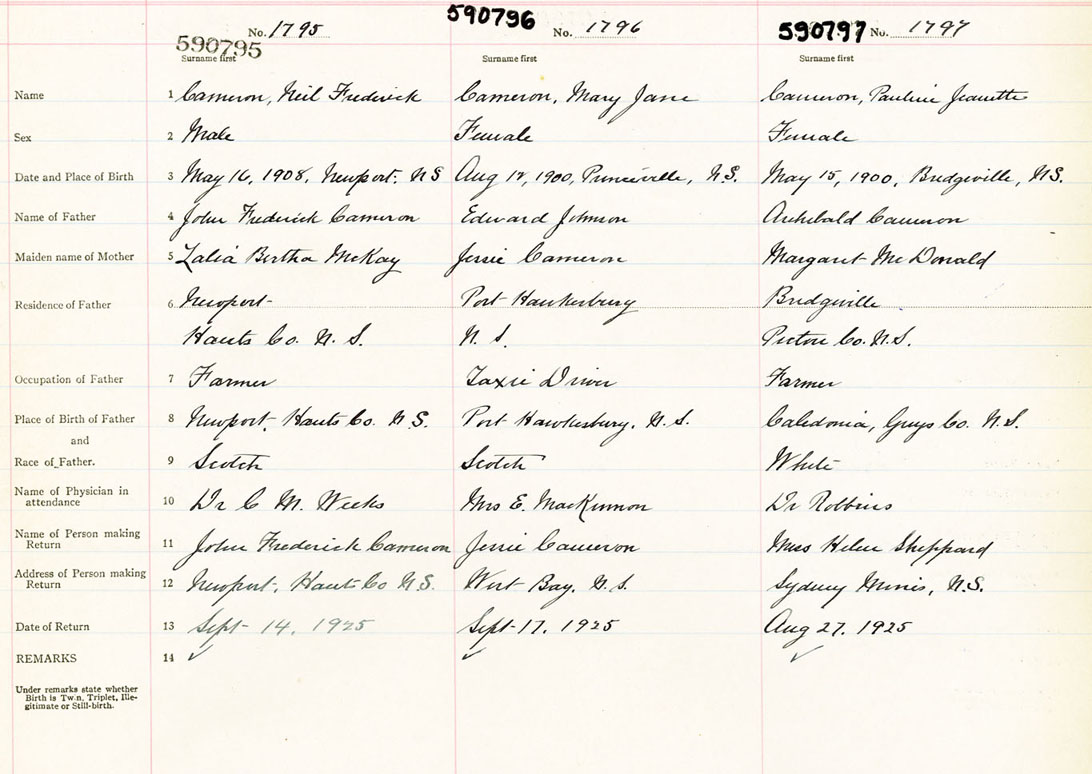 590795 No. 1795 590796 No. 1796 590797 No. 1797
Surname first Surname first Surname first
Name 1 Cameron, Neil Frederick Cameron, Mary Jane Cameron, Pauline Jeanette
Sex 2 Male Female Female
Date and Place of Birth 3 May 16, 1908, Newport. N S Aug 12, 1900, Princeville, N.S. May 15, 1900, Bridgeville, N.S.
Name of Father 4 John Frederick Cameron Edward Johnson Archibald Cameron
Maiden name of Mother 5 Zalia Bertha McKay Jessie Cameron Margaret McDonald
Residence of Father 6 Newport Port Hawkesbury Bridgeville
Hants Co. N. S. N. S. Pictou Co. N.S.
Occupation of Father 7 Farmer Taxie Driver Farmer
Place of Birth of Father 8 Newport, Hants Co. N.S. Port Hawkesbury, N. S. Caledonia, Guys Co. N.S.
and
Race of Father. 9 Scotch Scotch White
Name of Physician in attendance 10 Dr C M. Weeks Mrs E. MacKinnon Dr Robbins
Name of Person making Return 11 John Frederick Cameron Jessie Cameron Miss Helen Sheppard
Address of Person making Return 12 Newport, Hants Co N.S. West Bay, N. S. Sydney Mines, N.S.
Date of Return 13 Sept 14, 1925 Sept 17, 1925 Aug 27, 1925
REMARKS 14
Under remarks state whether
Birth is Twin, Triplet, Ille-
gitimate or Still-birth.